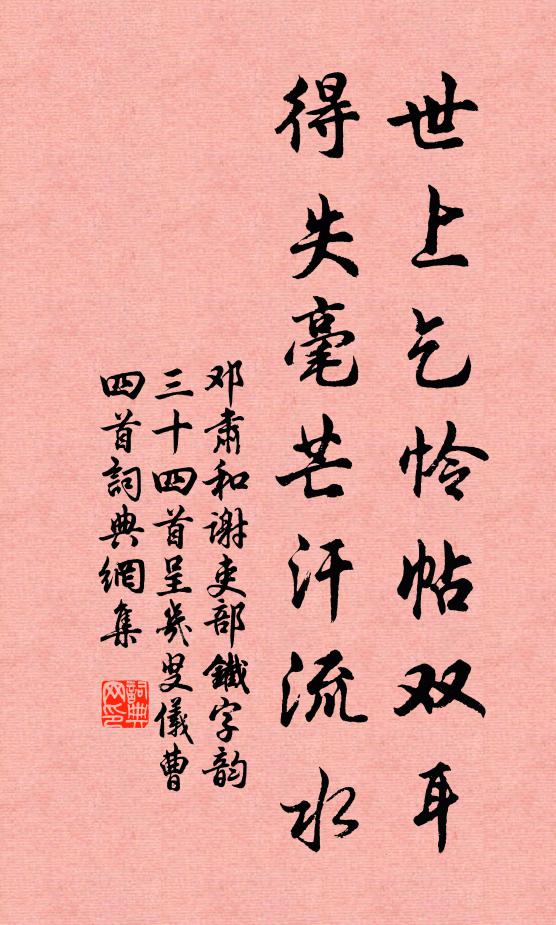 世上乞怜帖双耳
得失毫芒汗流水
邓肃和谢吏部鐵字韵
三十四首呈幾叟儀曹
四首詞典網集
詞典网印